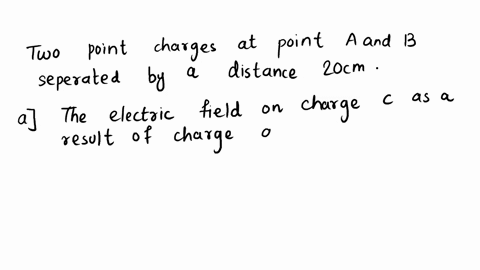 Two point charges at point A and B
seperated by a distance 20cm.
a] The electric field on charge c as a
result of charge